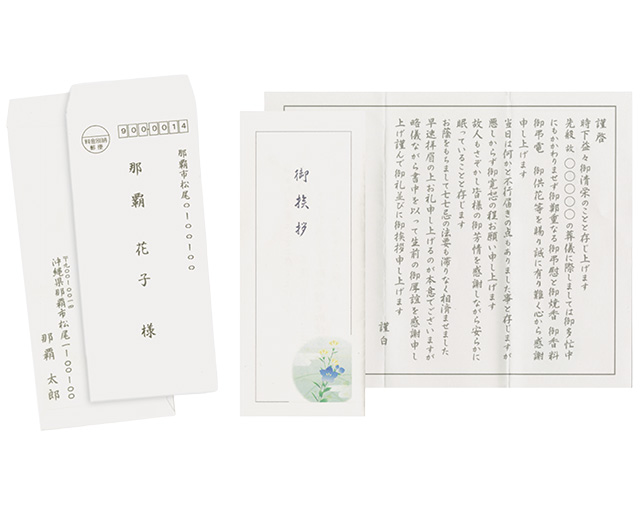 900-0014
料金別納
郵便
那覇市松尾〇ー〇〇ー〇〇
那覇 花子 様
沖縄県那覇市松尾一ー〇〇ー〇〇
那覇 太郎
御挨拶
謹啓
時下益々御清栄のことと存じ上げます
先般故 〇〇〇〇〇の葬儀に際しましては御多忙中
にもかかわりませず御鄭重なる御弔慰と御焼香 御香料
御弔電 御供花等を賜り誠に有り難く心から感謝
申し上げます
当日は何かと不行届きの点もありました事と存じますが
悪しからず御寛恕の程お願い申し上げます
故人もさぞかし皆様の御芳情を感謝しながら安らかに
眠っていることと存じます
お蔭をもちまして七七忌の法要も滞りなく相済ませました
早速拝眉の上お礼申し上げるのが本意でございますが
略儀ながら書中を以って生前の御厚誼を感謝申し
上げ謹んで御礼並びに御挨拶申し上げます
謹白